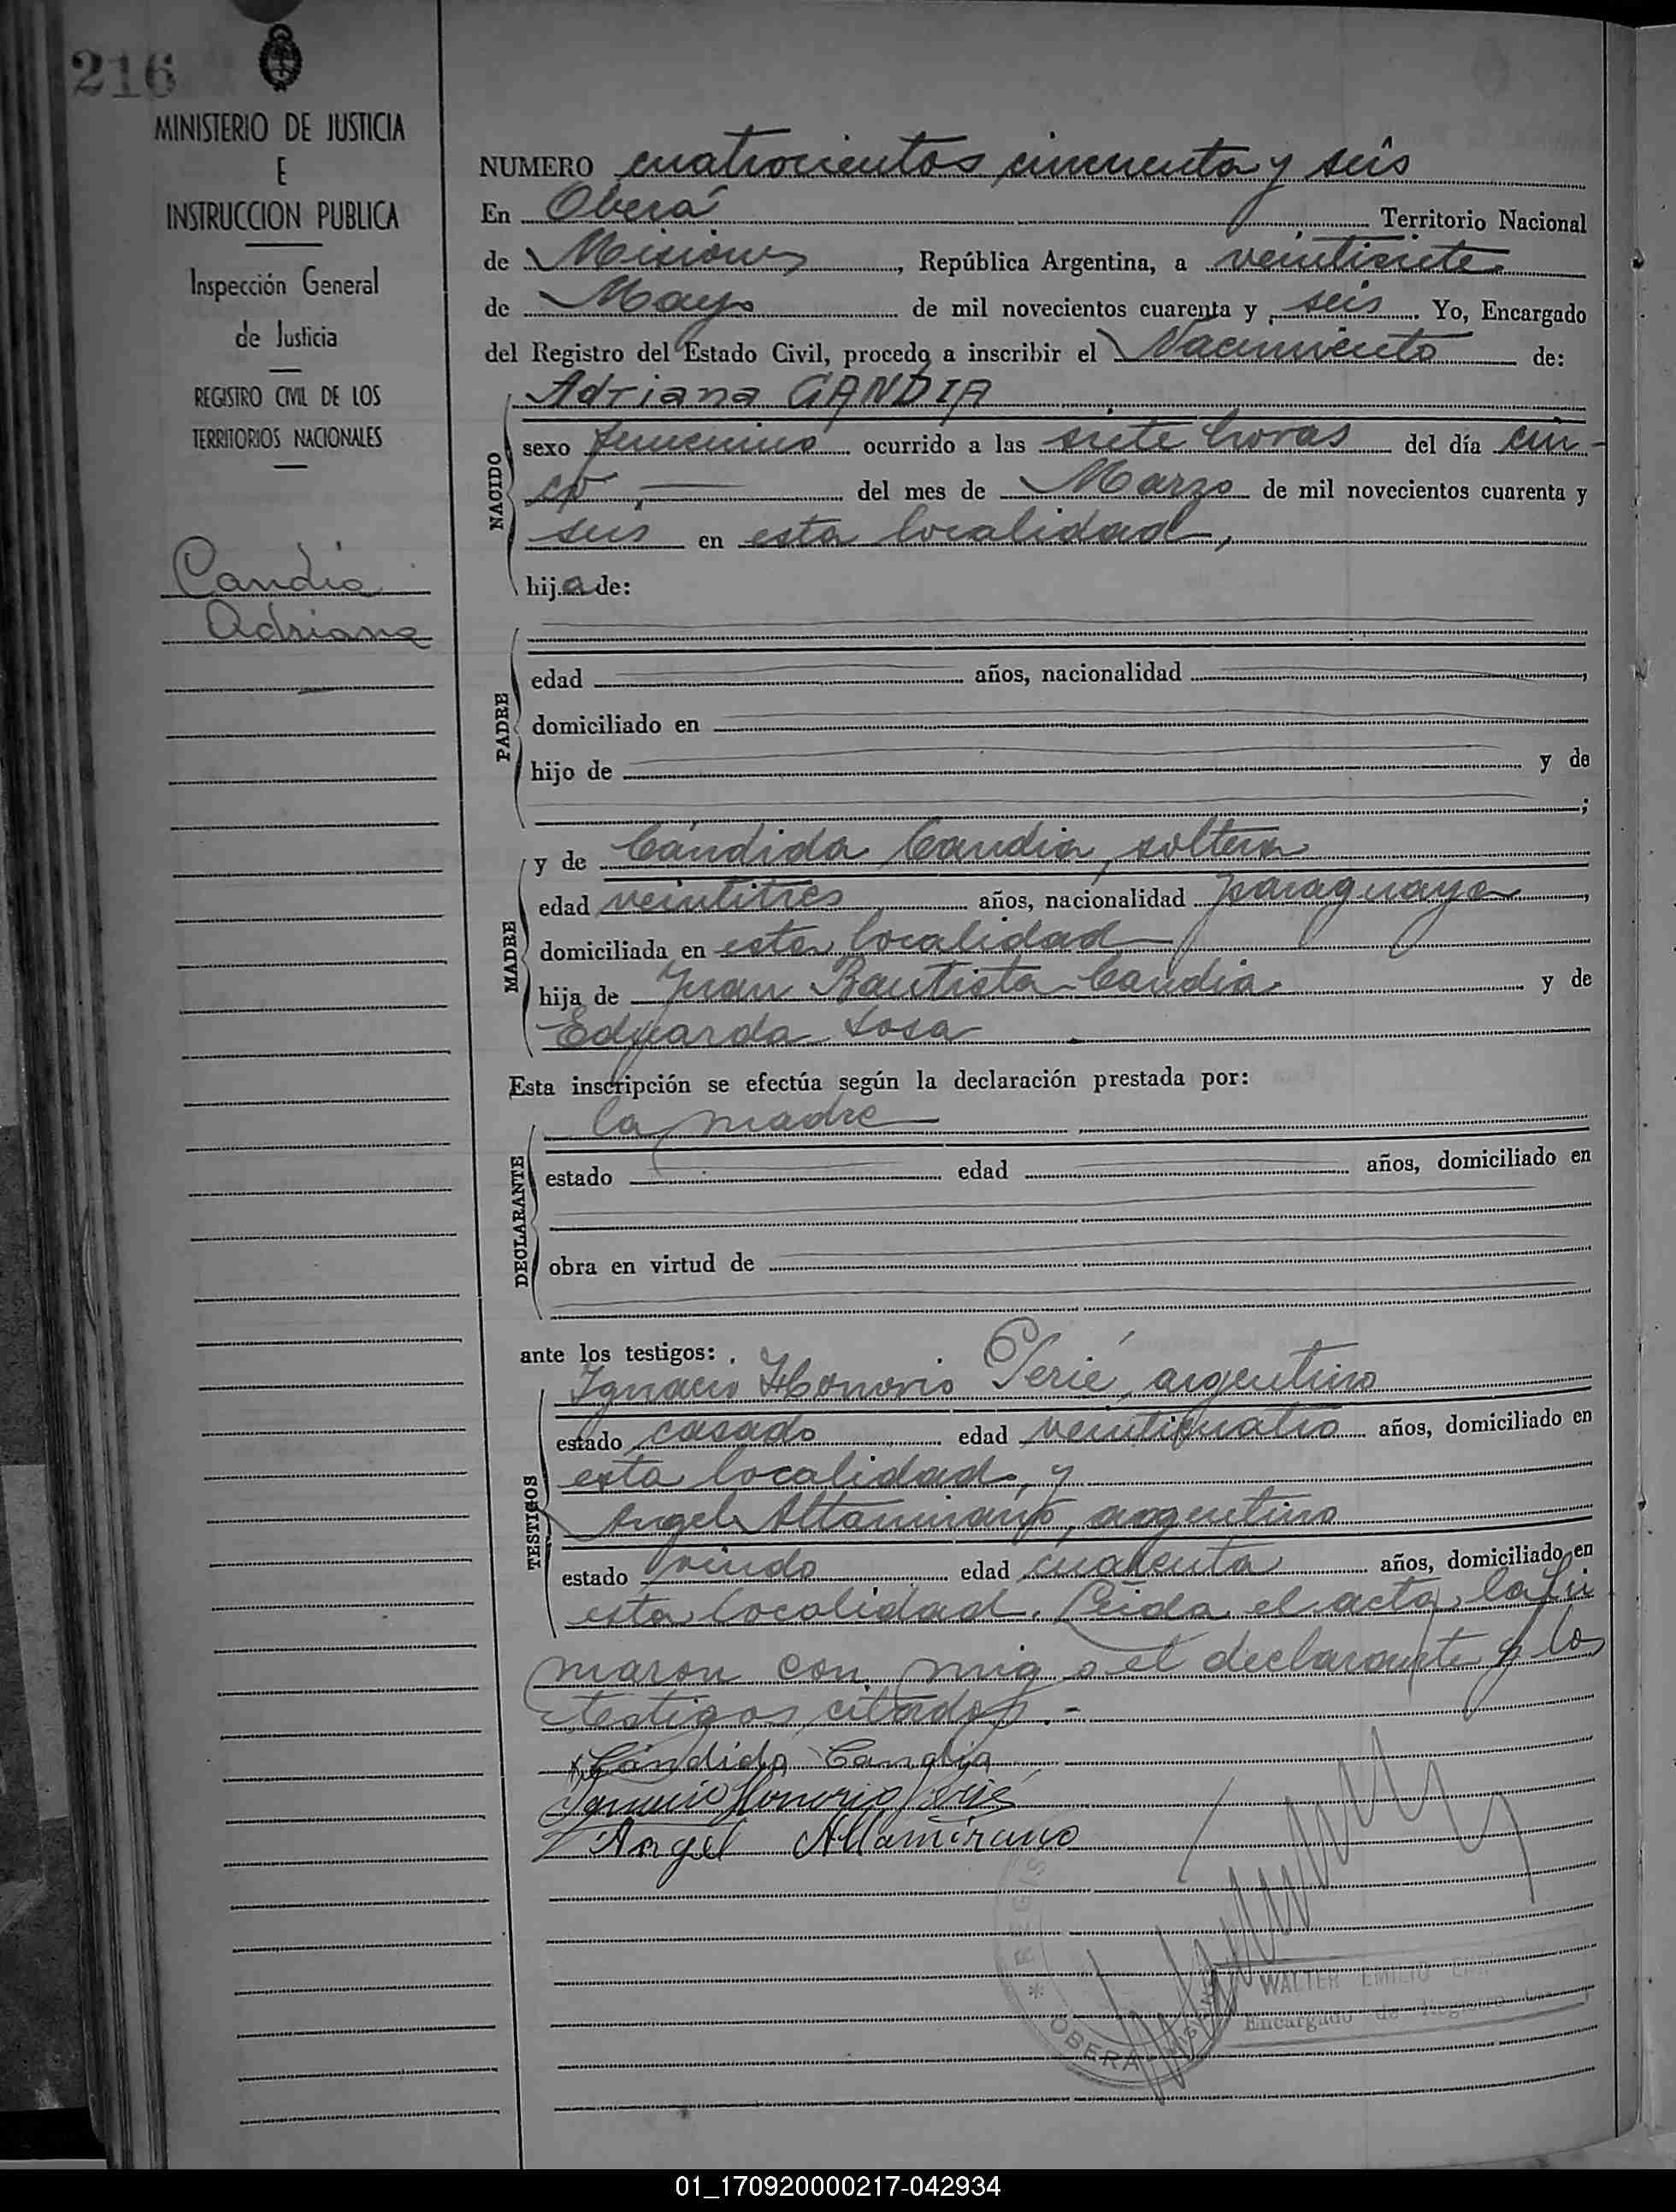 216
MINISTERIO DE JUSTICIA
E
INSTRUCCION PUBLICA
Inspección General
de Justicia
REGISTRO CIVIL DE LOS
TERRITORIOS NACIONALES
Candia
Adriana
NUMERO cuatrocientos cincuenta y seis
En Oberá Territorio Nacional
de Misiones, República Argentina, a veintisiete
de Mayo de mil novecientos cuarenta y seis. Yo, Encargado
del Registro del Estado Civil, procedo a inscribir el Nacimiento de:
Adriana CANDIA
NACIDO
sexo femenino ocurrido a las siete horas del día cin-
co, del mes de Marzo de mil novecientos cuarenta y
seis en esta localidad,
hija de:
PADRE
edad años, nacionalidad ,
domiciliado en
hijo de y de
;
MADRE
y de Cándida Candia, soltera
edad veintitres años, nacionalidad paraguaya,
domiciliada en esta localidad
hija de Juan Bautista Candia y de
Eduarda Sosa
Esta inscripción se efectúa según la declaración prestada por:
la madre
DECLARANTE
estado edad años, domiciliado en
obra en virtud de
ante los testigos:
TESTIGOS
Ignacio Honorio Perié, argentino
estado casado edad veinticuatro años, domiciliado en
esta localidad, y
Angel Altamirano, argentino
estado viudo edad cuarenta años, domiciliado en
esta localidad. Leida el acta, la fir
maron con migo el declarante y los
testigos citados.-
Cándida Candia
Ignacio Honorio Perié
Angel Altamirano
OBERA
WALTER EMILIO
Encargado de Registro
01_170920000217-042934